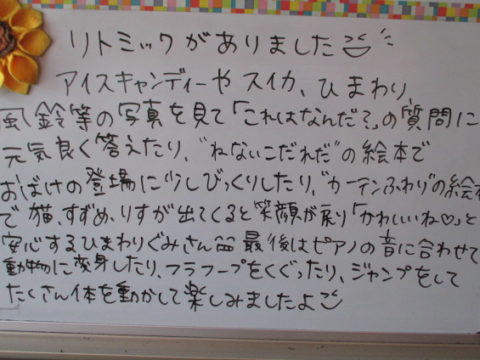 リトミックがありました
アイスキャンディーやスイカ、ひまわり、
風鈴等の写真を見て「これはなんだ?」の質問に
元気良く答えたり、"ねないこだれだ"の絵本で
おばけの登場に少しびっくりしたり、"カーテンふわり"の絵本
で猫、すずめ、りすが出てくると笑顔が戻り「かわいいね♡」と
安心するひまわりぐみさん 最後はピアノの音に合わせて
動物に変身したり、フラフープをくぐったり、ジャンプをして
たくさん体を動かして楽しみましたよ